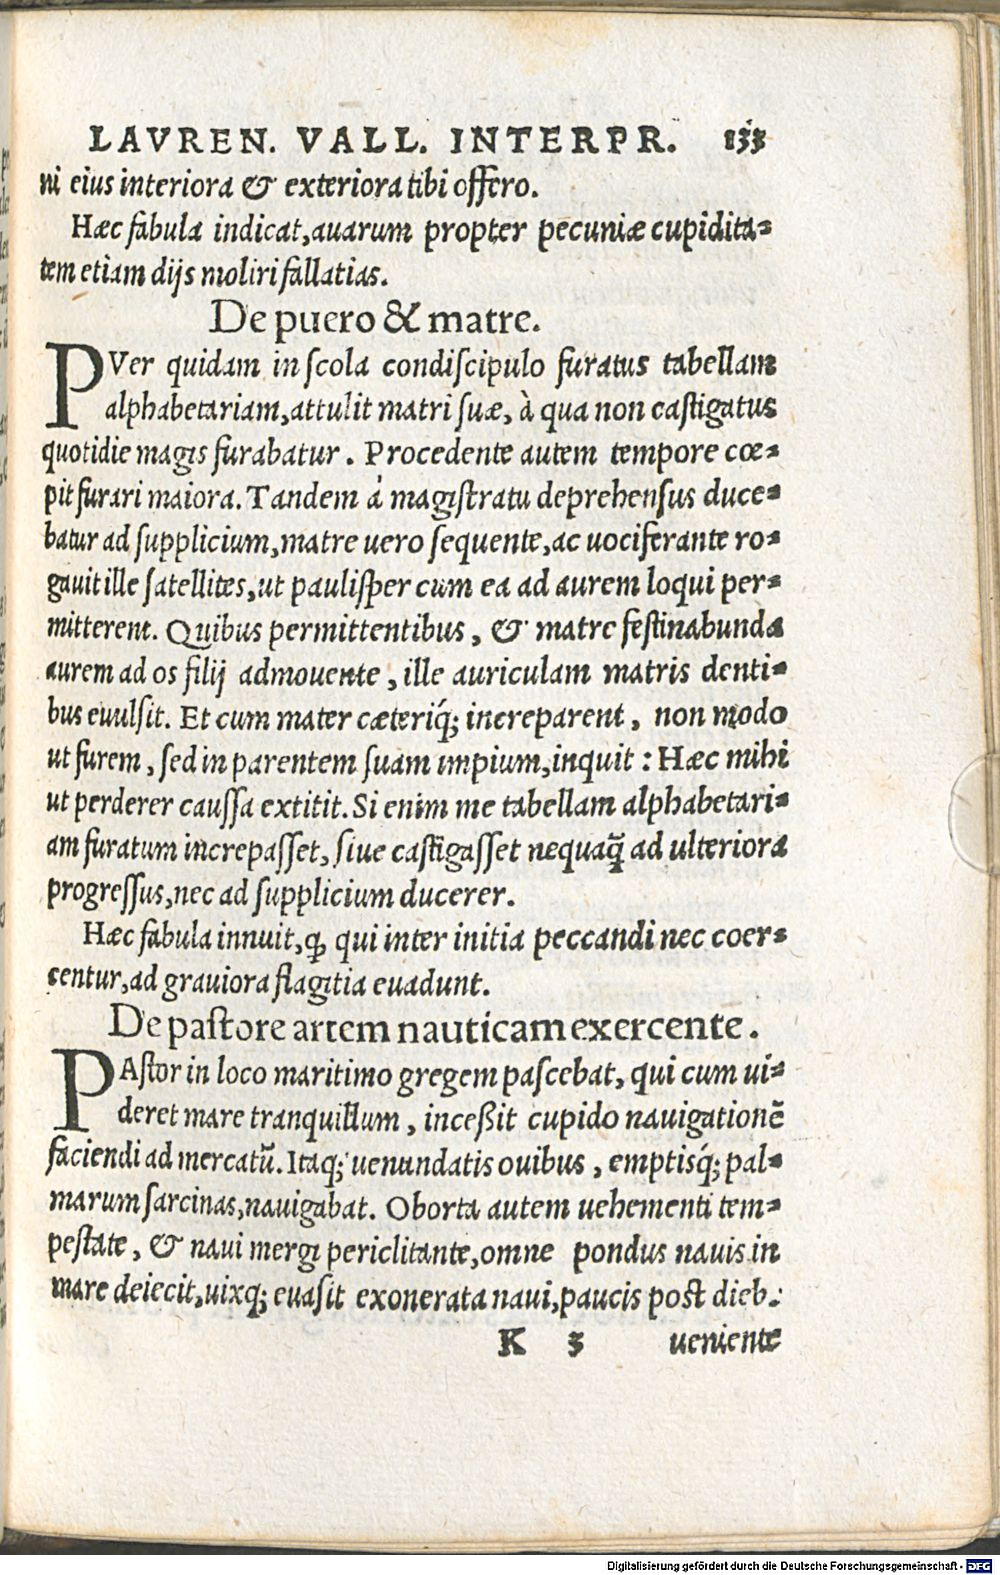 LAVREN. VALL. INTERPR. 133
ni eius interiora & exteriora tibi offero.
Hæc fabula indicat, auarum propter pecuniæ cupidita-
tem etiam dijs moliri fallatias.
De puero & matre.
PVer quidam in scola condiscipulo furatus tabellam
alphabetariam, attulit matri suæ, à qua non castigatus
quotidie magis furabatur. Procedente autem tempore cœ-
pit furari maiora. Tandem à magistratu deprehensus duce-
batur ad supplicium, matre uero sequente, ac uociferante ro-
gauit ille satellites, ut paulisper cum ea ad aurem loqui per-
mitterent. Quibus permittentibus, & matre festinabunda
aurem ad os filij admouente, ille auriculam matris denti-
bus euulsit. Et cum mater cæteriq́; increparent, non modo
ut furem, sed in parentem suam impium, inquit: Hæc mihi
ut perderer caussa extitit. Si enim me tabellam alphabetari-
am furatum increpasset, siue castigasset nequaq̃ ad ulteriora
progressus, nec ad supplicium ducerer.
Hæc fabula innuit, ꝙ qui inter initia peccandi nec coer-
centur, ad grauiora flagitia euadunt.
De pastore artem nauticam exercente.
PAstor in loco maritimo gregem pascebat, qui cum ui-
deret mare tranquillum, inceßit cupido nauigationẽ
faciendi ad mercatũ. Itaq; uenundatis ouibus, emptisq́; pal-
marum sarcinas, nauigabat. Oborta autem uehementi tem-
pestate, & naui mergi periclitante, omne pondus nauis in
mare deiecit, uixq; euasit exonerata naui, paucis post dieb.
K 3 ueniente
Digitalisierung gefördert durch die Deutsche Forschungsgemeinschaft - DFG